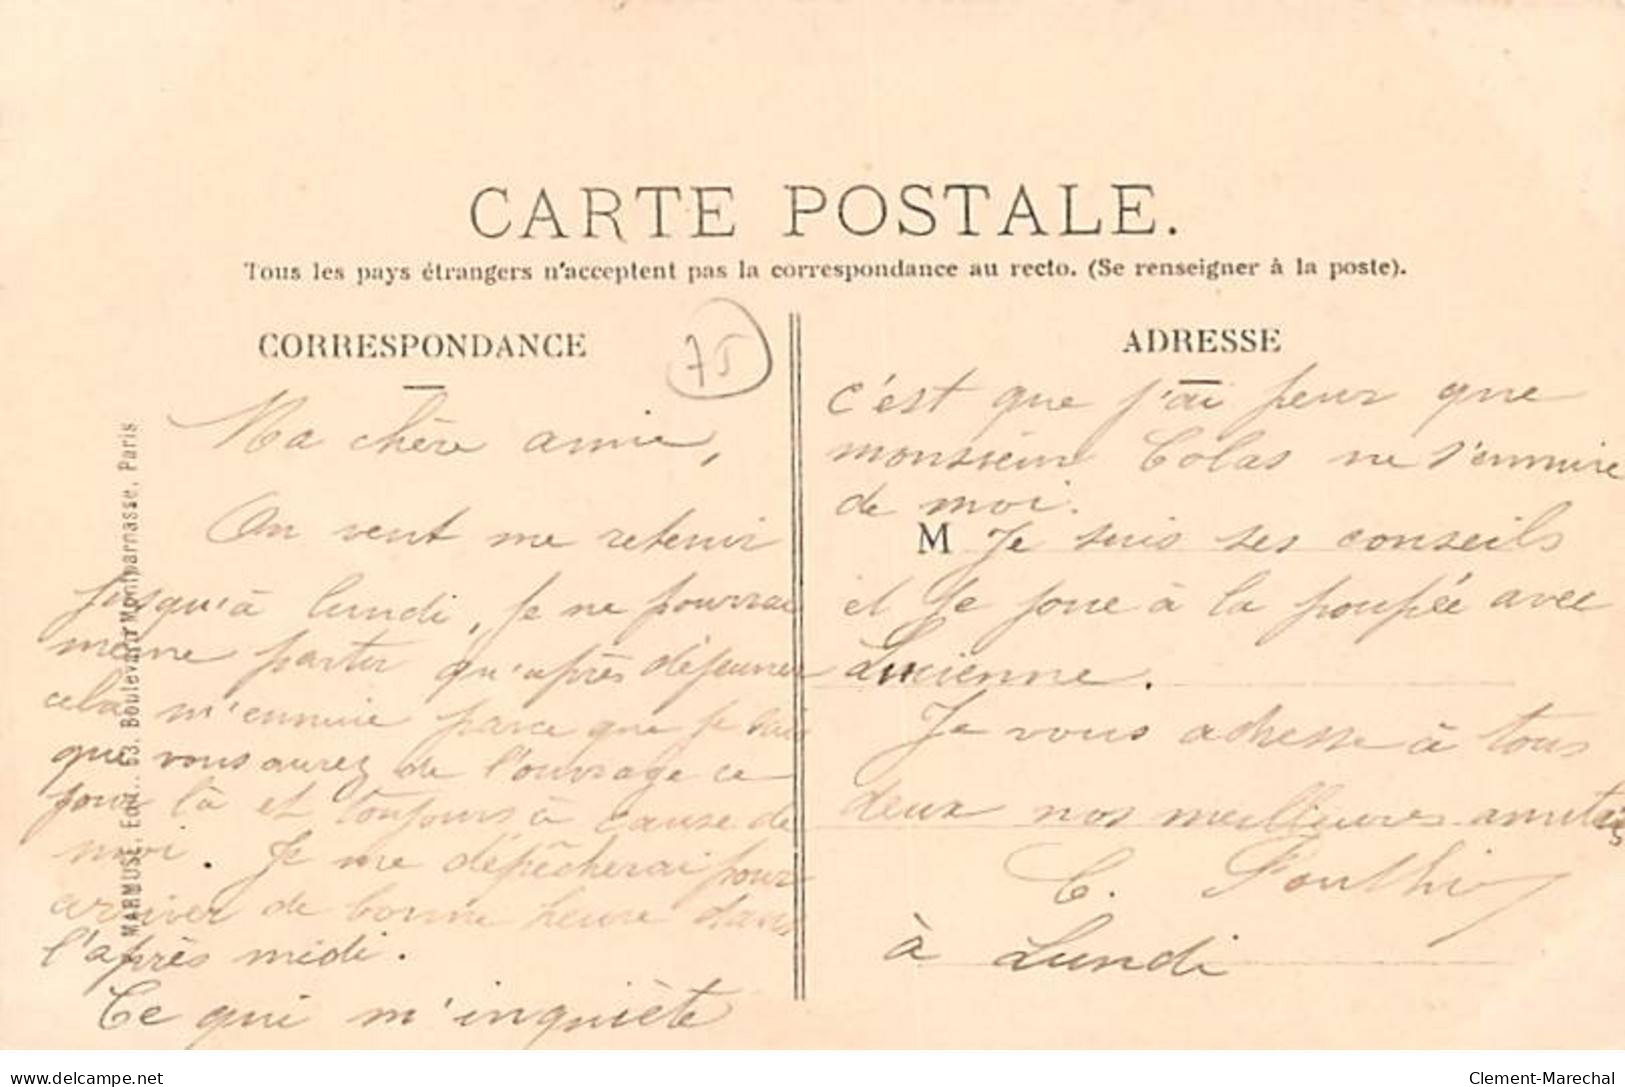 CARTE POSTALE.
Tous les pays étrangers n'acceptent pas la correspondance au recto. (Se renseigner à la poste).
CORRESPONDANCE
75
Ma chère amie,
On veut me retenir
jusqu'à lundi, je ne pourrai
même partir qu'après déjeuner
cela m'ennuie parce que je sais
que vous aurez de l'ouvrage ce
jour là et toujours à cause de
moi. Je me dépêcherai pour
arriver de bonne heure dans
l'après midi.
Ce qui m'inquiète
MARMUSE, Edit., 53, Boulevard Montparnasse, Paris
ADRESSE
c'est que j'ai peur que
monsieur Colas ne s'ennuie
de moi.
M Je suis ses conseils
et je joue à la poupée avec
Lucienne.
Je vous adresse à tous
deux nos meilleures amitiés
C.
à Lundi
delcampe.net
Clement-Marechal